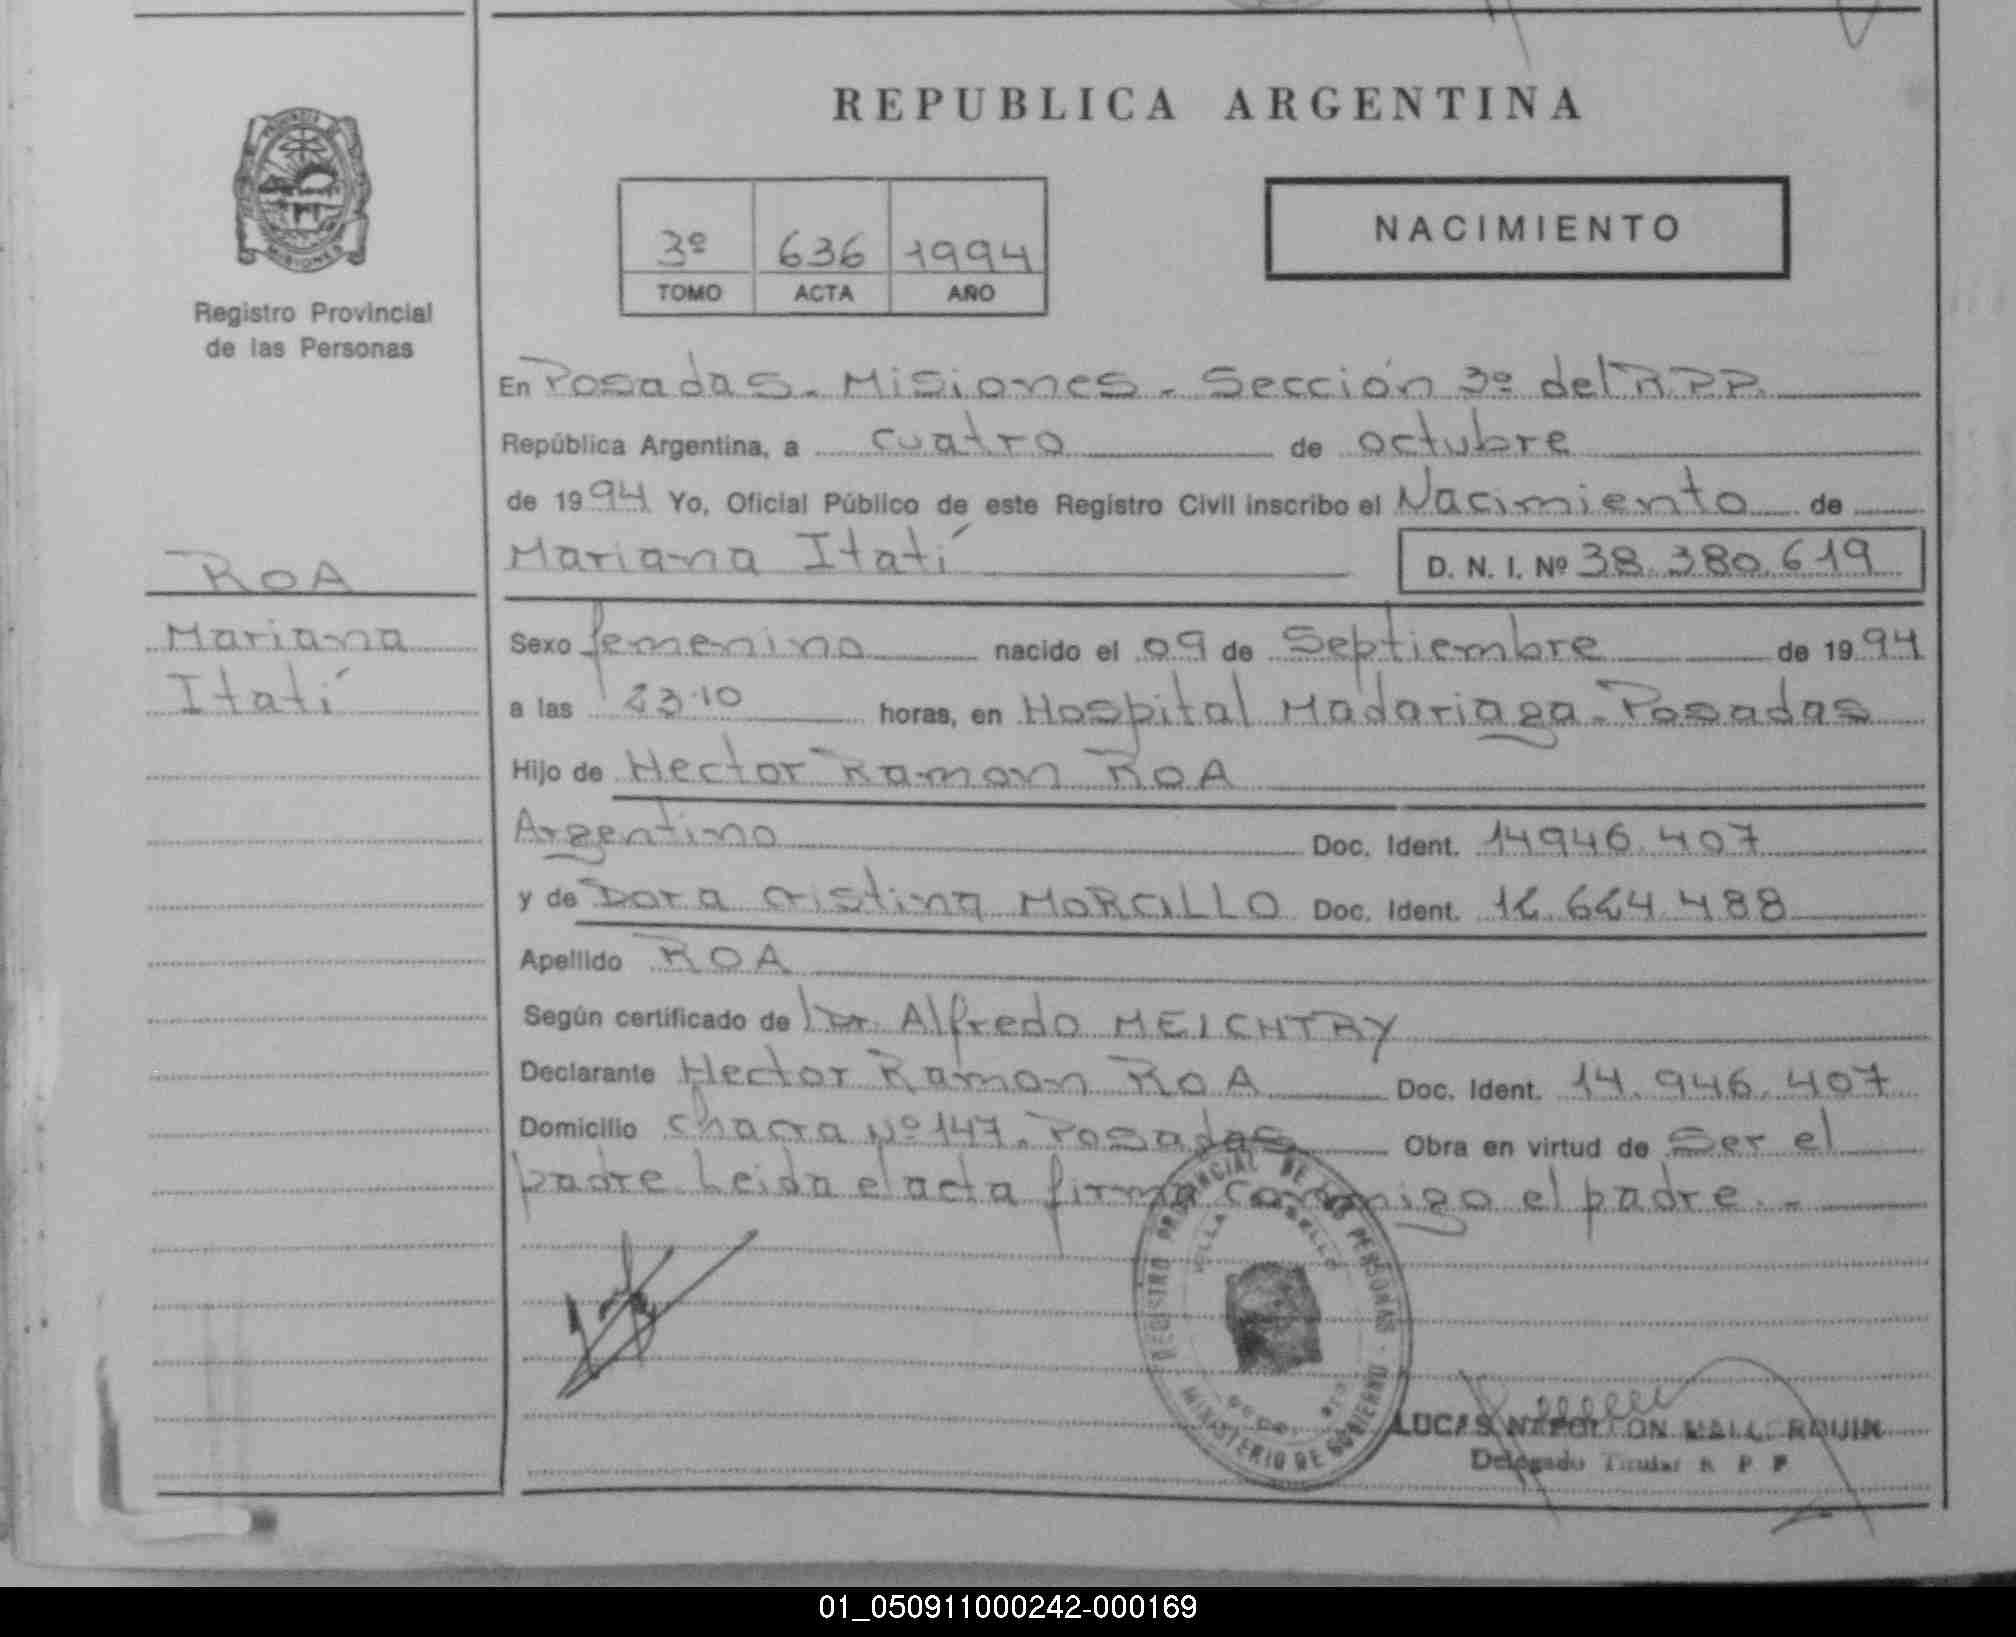 REPUBLICA ARGENTINA
PROVINCIA DE
MISIONES
Registro Provincial
de las Personas
3º 636 1994
TOMO ACTA AÑO
NACIMIENTO
En Posadas - Misiones - Sección 3º del R.P.P.
República Argentina, a cuatro de octubre
de 1994 Yo, Oficial Público de este Registro Civil inscribo el Nacimiento de
Mariana Itatí D. N. I. Nº 38.380.619
ROA
Mariana
Itatí
Sexo femenino nacido el 09 de Septiembre de 1994
a las 23.10 horas, en Hospital Madariaga - Posadas
Hijo de Hector Ramon ROA
Argentino Doc. Ident. 14946.407
y de Dora Cristina MORCILLO Doc. Ident.
Apellido ROA
Según certificado de Dr. Alfredo MEICHTRY
Declarante Hector Ramon ROA Doc. Ident. 14.946.407
Domicilio Chacra Nº 147. Posadas Obra en virtud de Ser el
padre Leida el acta firma conmigo el padre. -
REGISTRO PROVINCIAL DE LAS PERSONAS
VILLA CABELLO
MINISTERIO DE GOBIERNO
LUCAS NAPOLEON MALLORQUIN
Delegado Titular R P P
01_050911000242-000169